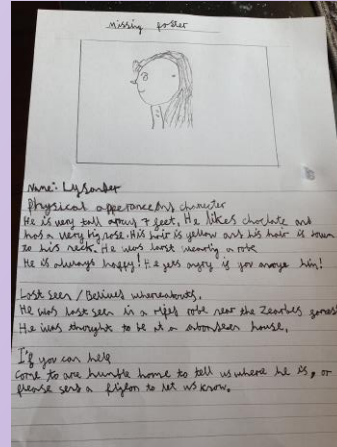 Missing poster
Name: Lysander
Physical apperance and character
He is very tall aroun 7 feet. He likes choclate and
has a very big nose. His hair is yellow and his hair is down
to his neck. He was last wearing a robe
He is always happy! He gets angry is you annoye him!
Last seen / Belived whereabouts.
He was last seen in a ripes robe near the
He was thought to be at a house.
If you can help
Come to are humble home to tell us where he is, or
please send a to let us know.